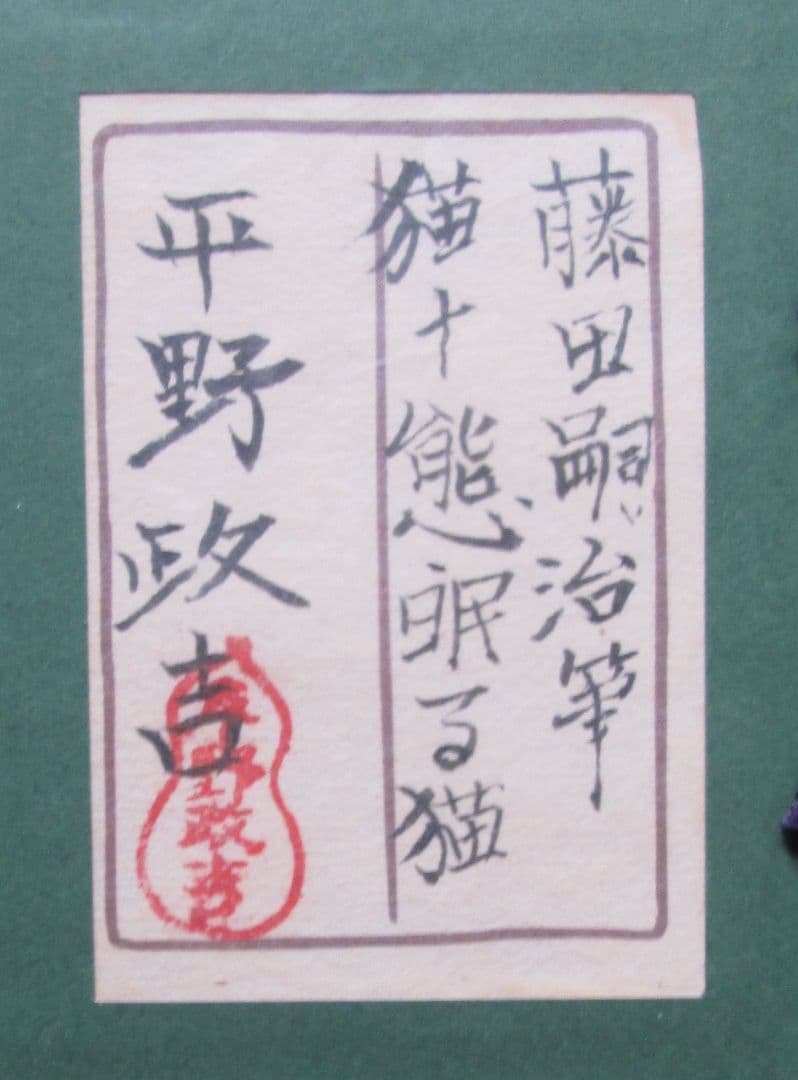 藤田嗣治筆
猫十態眠る猫
平野政吉
平野政吉